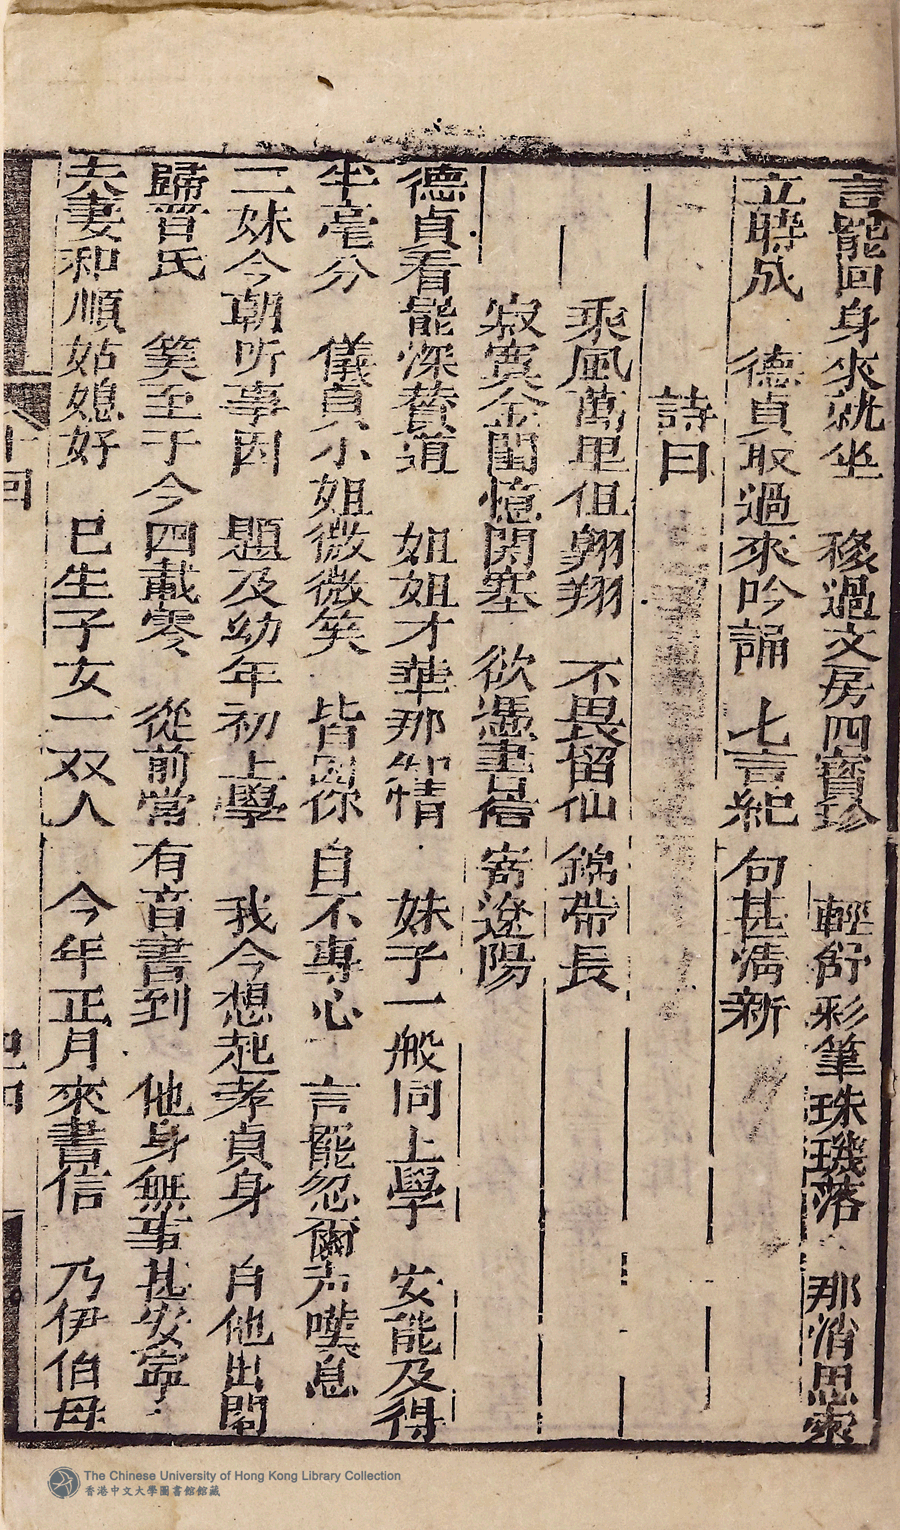 言罷回身來就坐　移過文房四寶珍　輕舒彩筆珠璣落　那消思索
立時成　德貞取過來吟誦　七言紀句甚清新
詩曰
乘風萬里但翱翔　不畏留仙錦帶長
寂寞金閨憶関塞　欲憑書信寄遼陽
德貞看罷深賛道　姐姐才華那知情　妹子一般同上學　安能及得
半毫分　儀貞小姐微微笑　皆因你自不專心　言罷忽爾声嘆息
二妹今朝听事因　題及幼年初上學　我今想起孝貞身　自他出閣
歸晋氏　筭至于今四載零　從前常有音書到　他身無事甚安寧
夫妻和順姑媳好　已生子女一双人　今年正月來書信　乃伊伯母
十回
The Chinese University of Hong Kong Library Collection
香港中文大學圖書館館藏